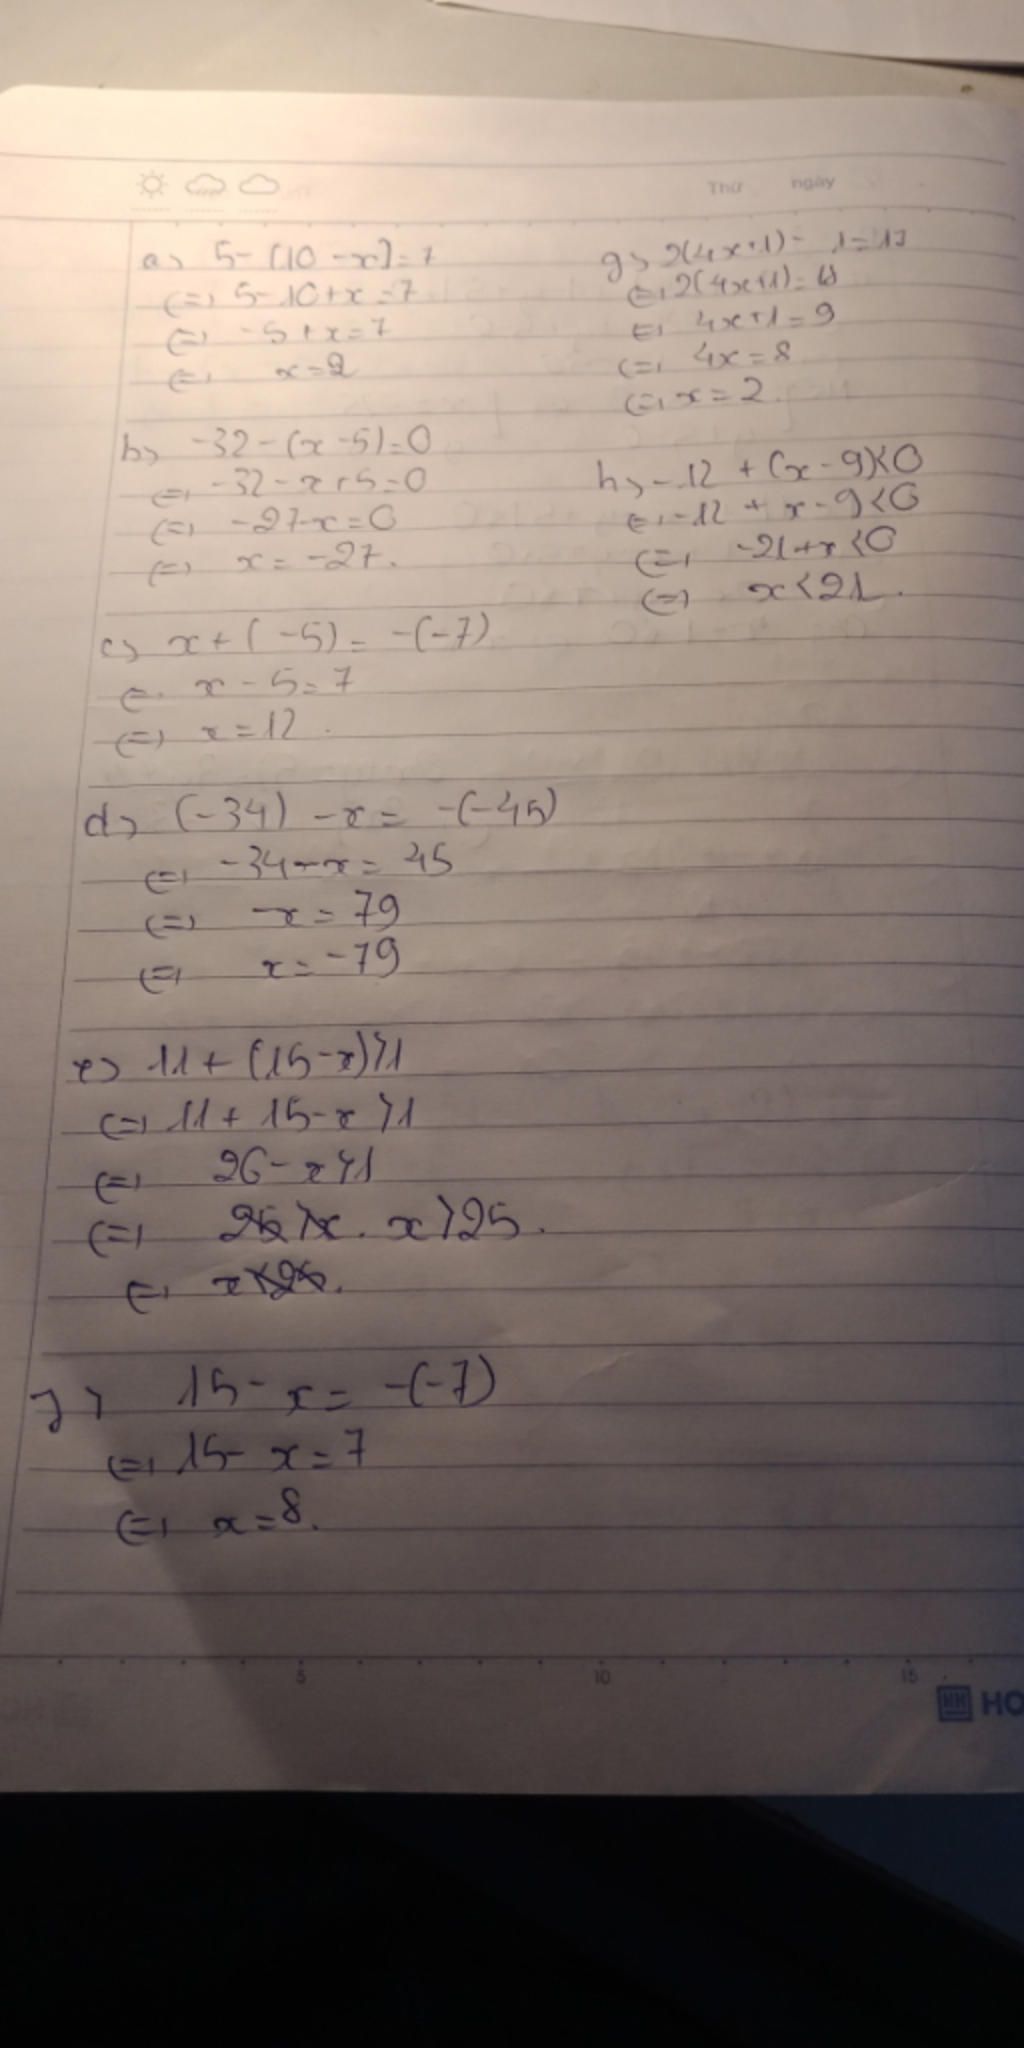 Thứ ngày
a> 5-[10-x]=7
<=> 5-10+x=7
<=> -5+x=7
<=> x=2
b> -32-(x-5)=0
<=> -32-x+5=0
<=> -27-x=0
<=> x=-27.
c> x+(-5)=-(-7)
<=> x-5=7
<=> x=12.
d> (-34)-x=-(-45)
<=> -34-x=45
<=> -x=79
<=> x=-79
e> 11+(15-x)>1
<=> 11+15-x>1
<=> 26-x>1
<=> 25>x. x>25.
<=> x<25.
15-x=-(-7)
<=> 15-x=7
<=> x=8.
g> 2(4x+1)-1=17
<=> 2(4x+1)=18
<=> 4x+1=9
<=> 4x=8
<=> x=2.
h> -12+(x-9)<0
<=> -12+x-9<0
<=> -21+x<0
<=> x<21.
5 10 15
HH HO